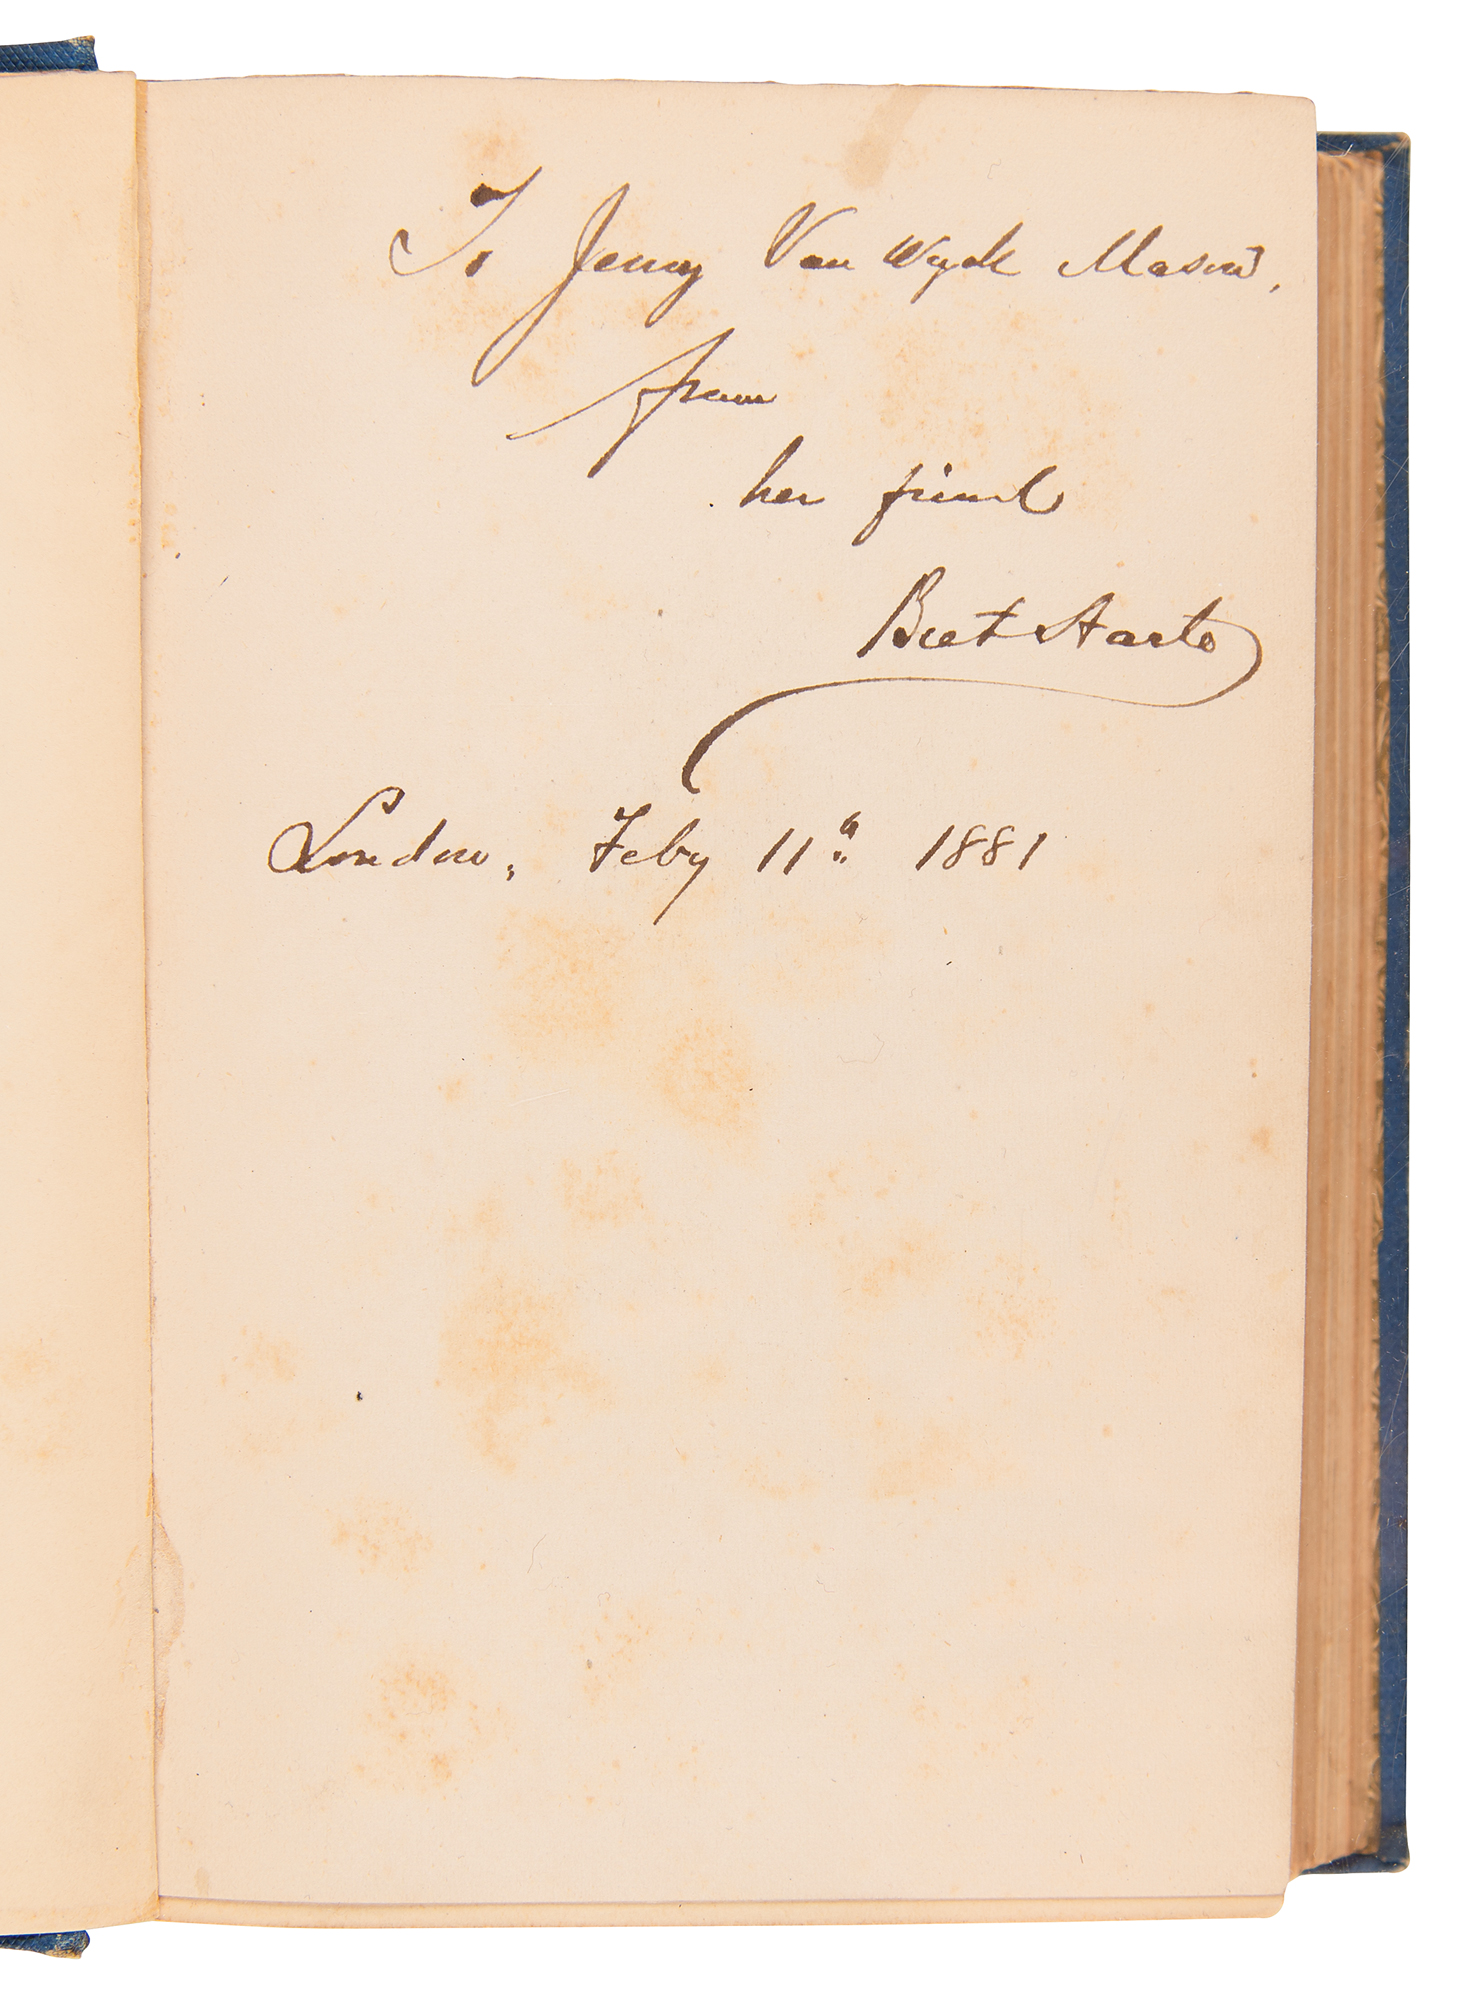 To Jenny Van Wyck Mason,
from
her friend
Bret Harte
London, Feby 11th 1881